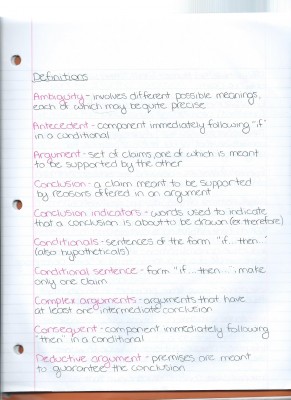 Definitions
Ambiguity - involves different possible meanings,
each of which may be quite precise
Antecedent - component immediately following "if"
in a conditional
Argument - set of claims, one of which is meant
to be supported by the other
Conclusion - a claim meant to be supported
by reasons offered in an argument
Conclusion indicators - words used to indicate
that a conclusion is about to be drawn (ex therefore)
Conditionals - sentences of the form "if...then..."
(also hypotheticals)
Conditional sentence - form "if...then...", make
only one claim
Complex arguments - arguments that have
at least one intermediate conclusion
Consequent - component immediately following
"then" in a conditional
Deductive argument - premises are meant
to guarantee the conclusion